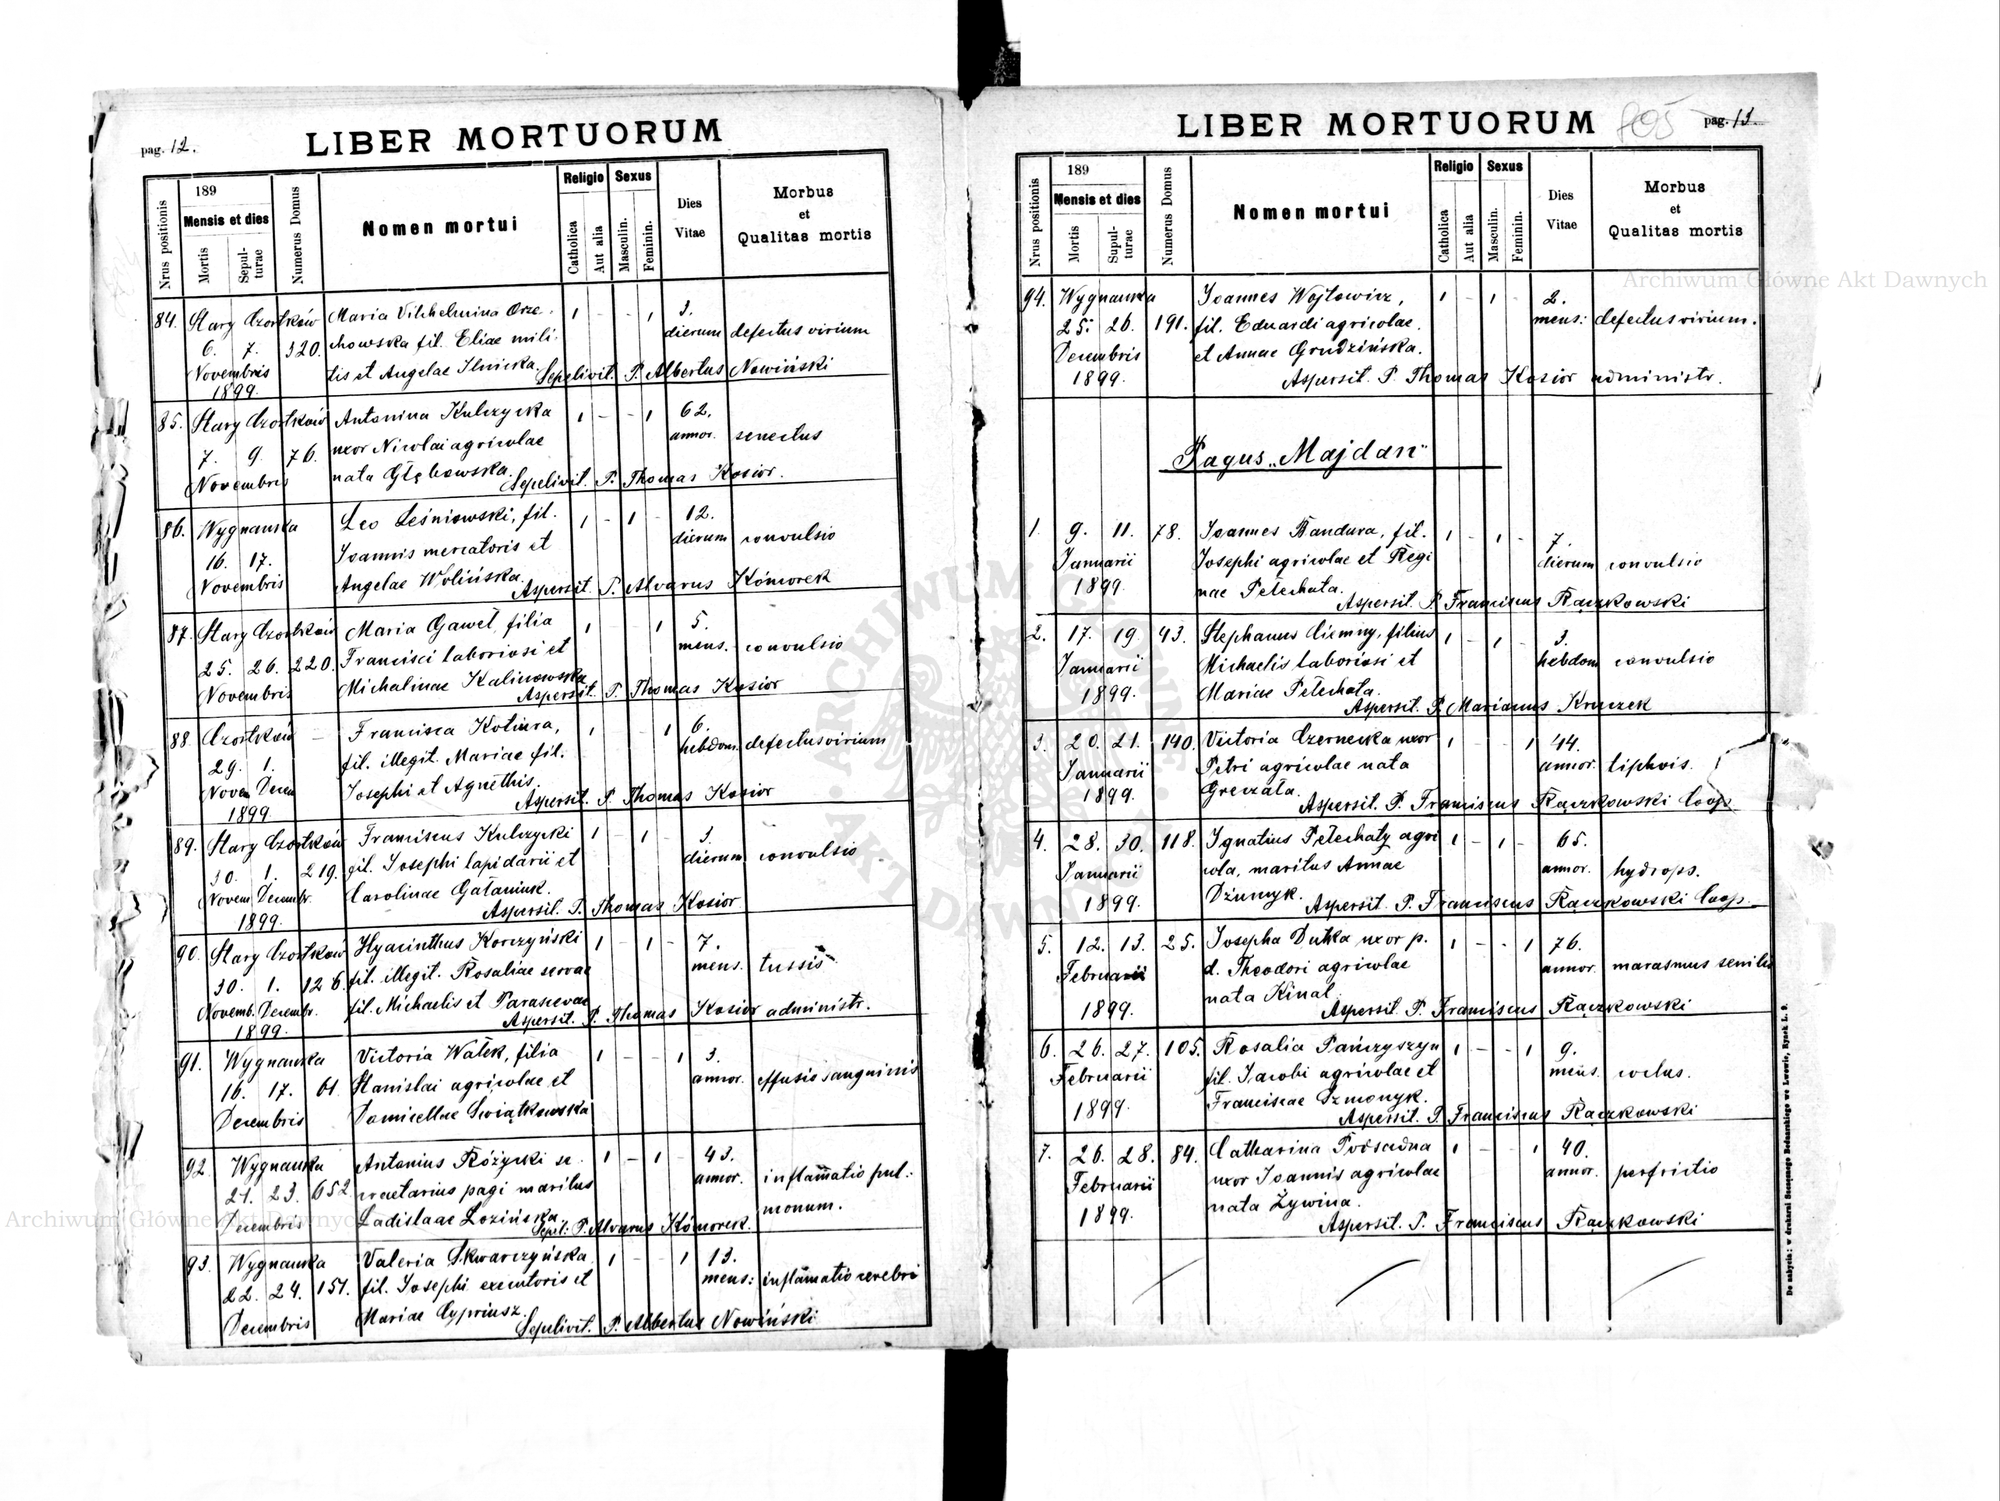 pag. 12.
LIBER MORTUORUM
Nrus positionis
189
Mensis et dies
Mortis
Sepul-
turae
Numerus Domus
Nomen mortui
Religio
Catholica
Aut alia
Sexus
Masculin.
Feminin.
Dies
Vitae
Morbus
et
Qualitas mortis
84. Stary Czortków Maria Vilhelmina Orze- 1 - - 1 3.
6. 7. 320. chowska fil. Eliae mili- dierum defectus virium
Novembris tis et Angelae Ilnicka. Sepelivit. P. Albertus Nowiński
1899.
85. Stary Czortków Antonina Kulczycka 1 - - 1 62.
7. 9. 76. uxor Nicolai agricolae annor. senectus
Novembris nata Głębowska. Sepelivit. P. Thomas Kosior.
86. Wygnanka Leo Leśniowski, fil. 1 - 1 - 12.
16. 17. Joannis mercatoris et dierum convulsio
Novembris Angelae Wolińska. Aspersit. P. Alvarus Kómorek
87. Stary Czortków Maria Gaweł, filia 1 1 5.
25. 26. 220. Francisci laboriosi et mens. convulsio
Novembris Michalinae Kalinowska Aspersit. P. Thomas Kosior
88. Czortków - Francisca Kotiura, 1 1 6.
29. 1. fil. illegit. Mariae fil. hebdom. defectus virium
Novem Decem Josephi et Agnethis. Aspersit. P. Thomas Kosior
1899
89. Stary Czortków Franciscus Kulczycki 1 - 1 - 3.
30. 1. 219. fil. Josephi lapidarii et dierum convulsio
Novem Decembr. Carolinae Gałaniuk. Aspersit. P. Thomas Kosior
1899.
90. Stary Czortków Hyacinthus Korczyński 1 - 1 - 7.
30. 1. 126. fil. illegit. Rosaliae servae mens. tussis
Novemb. Decembr. fil. Michaelis et Parascevae Aspersit. P. Thomas Kosior administr.
1899.
91. Wygnanka Victoria Wałek, filia 1 - - 1 3.
16. 17. 61. Stanislai agricolae et annor. effusio sanguinis
Decembris Domicellae Swiątkowska
92. Wygnanka Antonius Różycki se- 1 - 1 - 43.
21. 23. 652. cretarius pagi maritus annor. inflammatio pul-
Decembris Ladislaae Lozińska. Sepel: P. Alvarus Kómorek. monum.
93. Wygnanka Valeria Skwarczyńska 1 - - 1 13.
22. 24. 151. fil. Josephi executoris et mens: inflamatio cerebri
Decembris Mariae Cypriusz. Sepelivit. P. Albertus Nowiński
LIBER MORTUORUM
805 pag. 13.
Nrus positionis
189
Mensis et dies
Mortis
Supul-
turae
Numerus Domus
Nomen mortui
Religio
Catholica
Aut alia
Sexus
Masculin.
Feminin.
Dies
Vitae
Morbus
et
Qualitas mortis
94. Wygnanka Joannes Wojtowicz, 1 - 1 - 2.
25. 26. 191. fil. Eduardi agricolae mens: defectus virium.
Decembris et Annae Grudzińska.
1899. Aspersit. P. Thomas Kosior administr.
Pagus „Majdan"
1. 9. 11. 78. Joannes Bandura, fil. 1 - 1 - 7.
Januarii Josephi agricolae et Regi dierum convulsio
1899. nae Petechata.
Aspersit. P. Franciscus Rączkowski
2. 17. 19. 43. Stephanus Ciemny, filius 1 - 1 - 3.
Januarii Michaelis laboriosi et hebdom convulsio
1899. Mariae Petechata.
Aspersit. P. Marianus Kruczek
3. 20. 21. 140. Victoria Czernecka uxor 1 - - 1 44.
Januarii Petri agricolae nata annor. tiphois.
1899. Greczata.
Aspersit. P. Franciscus Rączkowski Coop.
4. 28. 30. 118. Ignatius Petechaty agri 1 - 1 - 65.
Januarii cola, maritus Annae annor. hydrops.
1899. Dziunyk. Aspersit. P. Franciscus Rączkowski Coop.
5. 12. 13. 25. Josepha Dutka uxor p. 1 - - 1 76.
Februarii d. Theodori agricolae annor. marasmus senilis
1899. nata Kinal.
Aspersit. P. Franciscus Rączkowski
6. 26. 27. 105. Rosalia Pańczyszyn 1 - - 1 9.
Februarii fil. Jacobi agricolae et mens.
1899. Franciscae Dzmonyk.
Aspersit. P. Franciscus Rączkowski
7. 26. 28. 84. Catharina Podsadna 1 - - 1 40.
Februarii uxor Joannis agricolae annor. perfrictio
1899. nata Żywina.
Aspersit. P. Franciscus Rączkowski
Do nabycia: w drukarni Szczęsnego Bednarskiego we Lwowie, Rynek L. 9.
Archiwum Główne Akt Dawnych
Archiwum Główne Akt Dawnych
ARCHIWUM GŁÓWNE AKT DAWNYCH